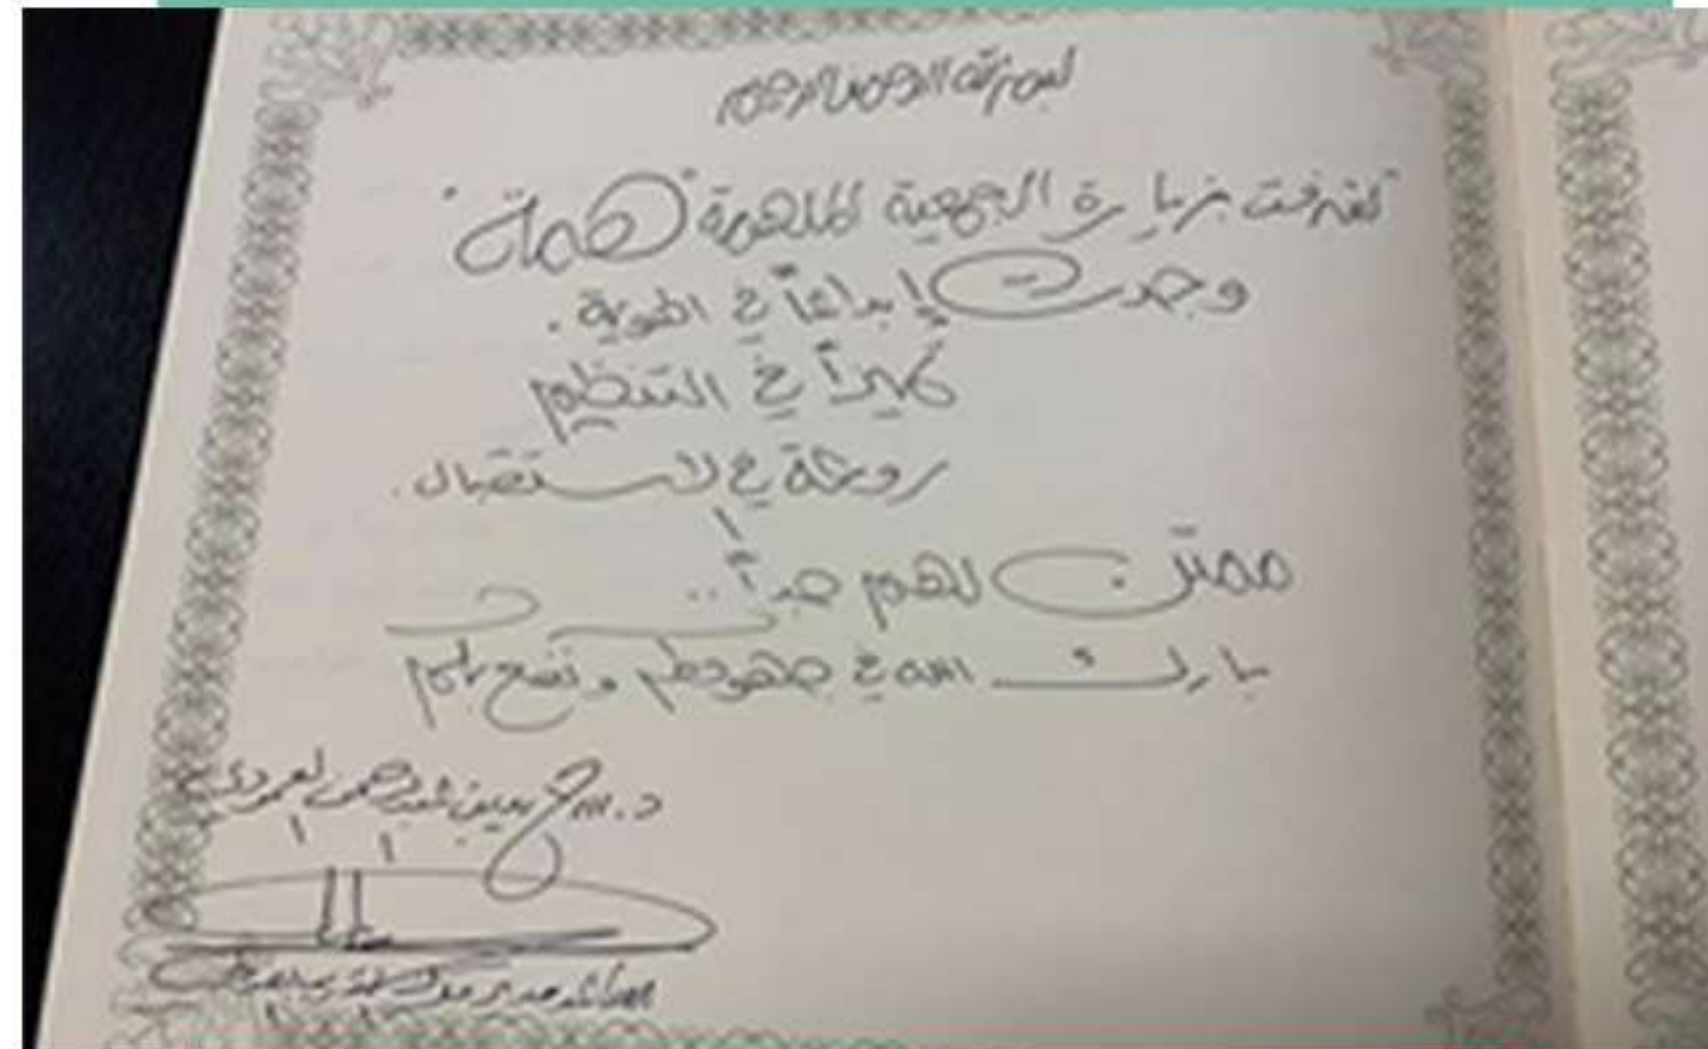 بسم الله الرحمن الرحيم
تشرفت بزيارة الجمعية الملهمة "همة"
وجدت إبداعاً في الهوية.
تميزاً في التنظيم
روعة في الاستقبال.
ممتن لهم جداً..
بارك الله في جهودكم ونفع بكم
د. بن عبدالرحمن العمودي